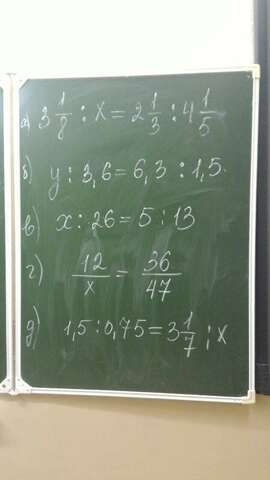 а) 3 1/8 : x = 2 1/3 : 4 1/5
б) y : 3,6 = 6,3 : 1,5.
в) x : 26 = 5 : 13
г) 12/x = 36/47
д) 1,5 : 0,75 = 3 1/7 : x